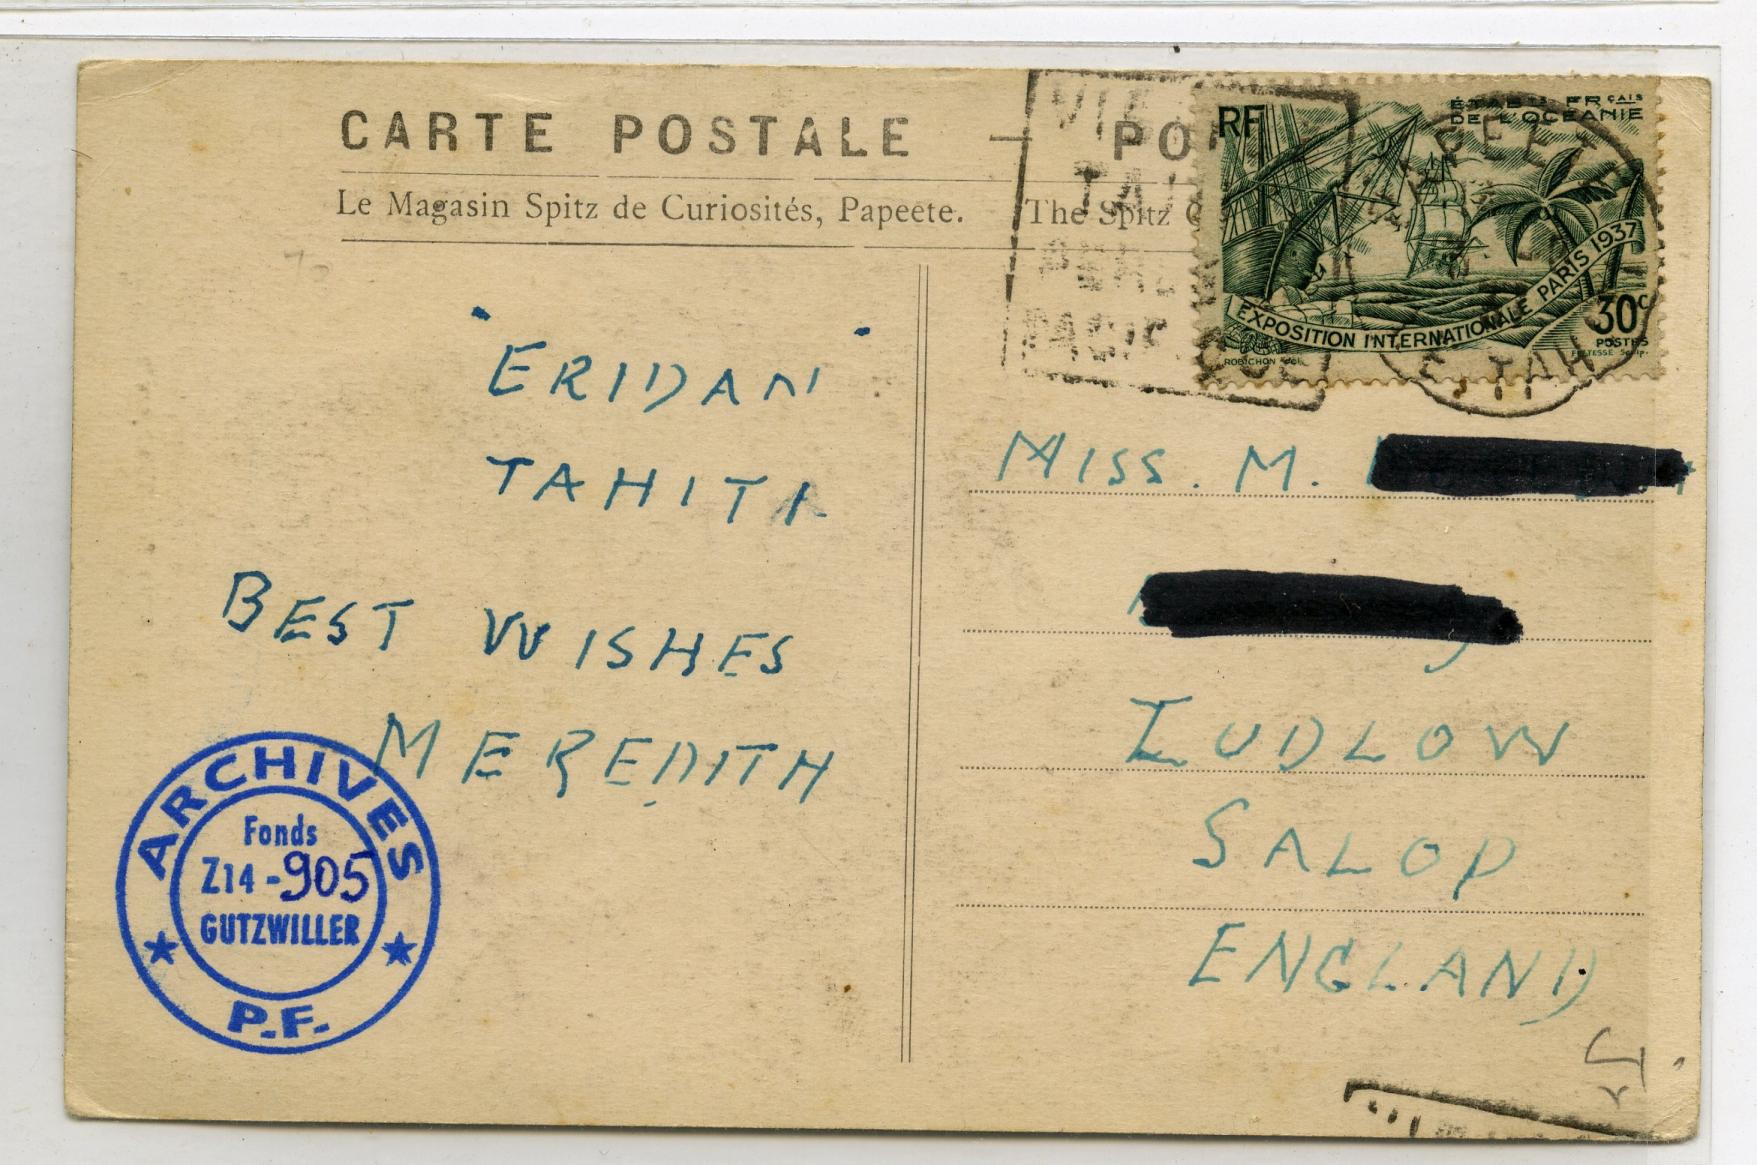 CARTE POSTALE — PO
Le Magasin Spitz de Curiosités, Papeete. The Spitz
RF
ÉTABts FRÇAIS
DE L'OCÉANIE
EXPOSITION INTERNATIONALE PARIS 1937
30c
POSTES
ROBICHON
"ERIDAN"
TAHITI
BEST WISHES
MEREDITH
MISS. M.
LUDLOW
SALOP
ENGLAND
ARCHIVES
Fonds
Z14-905
GUTZWILLER
P.F.